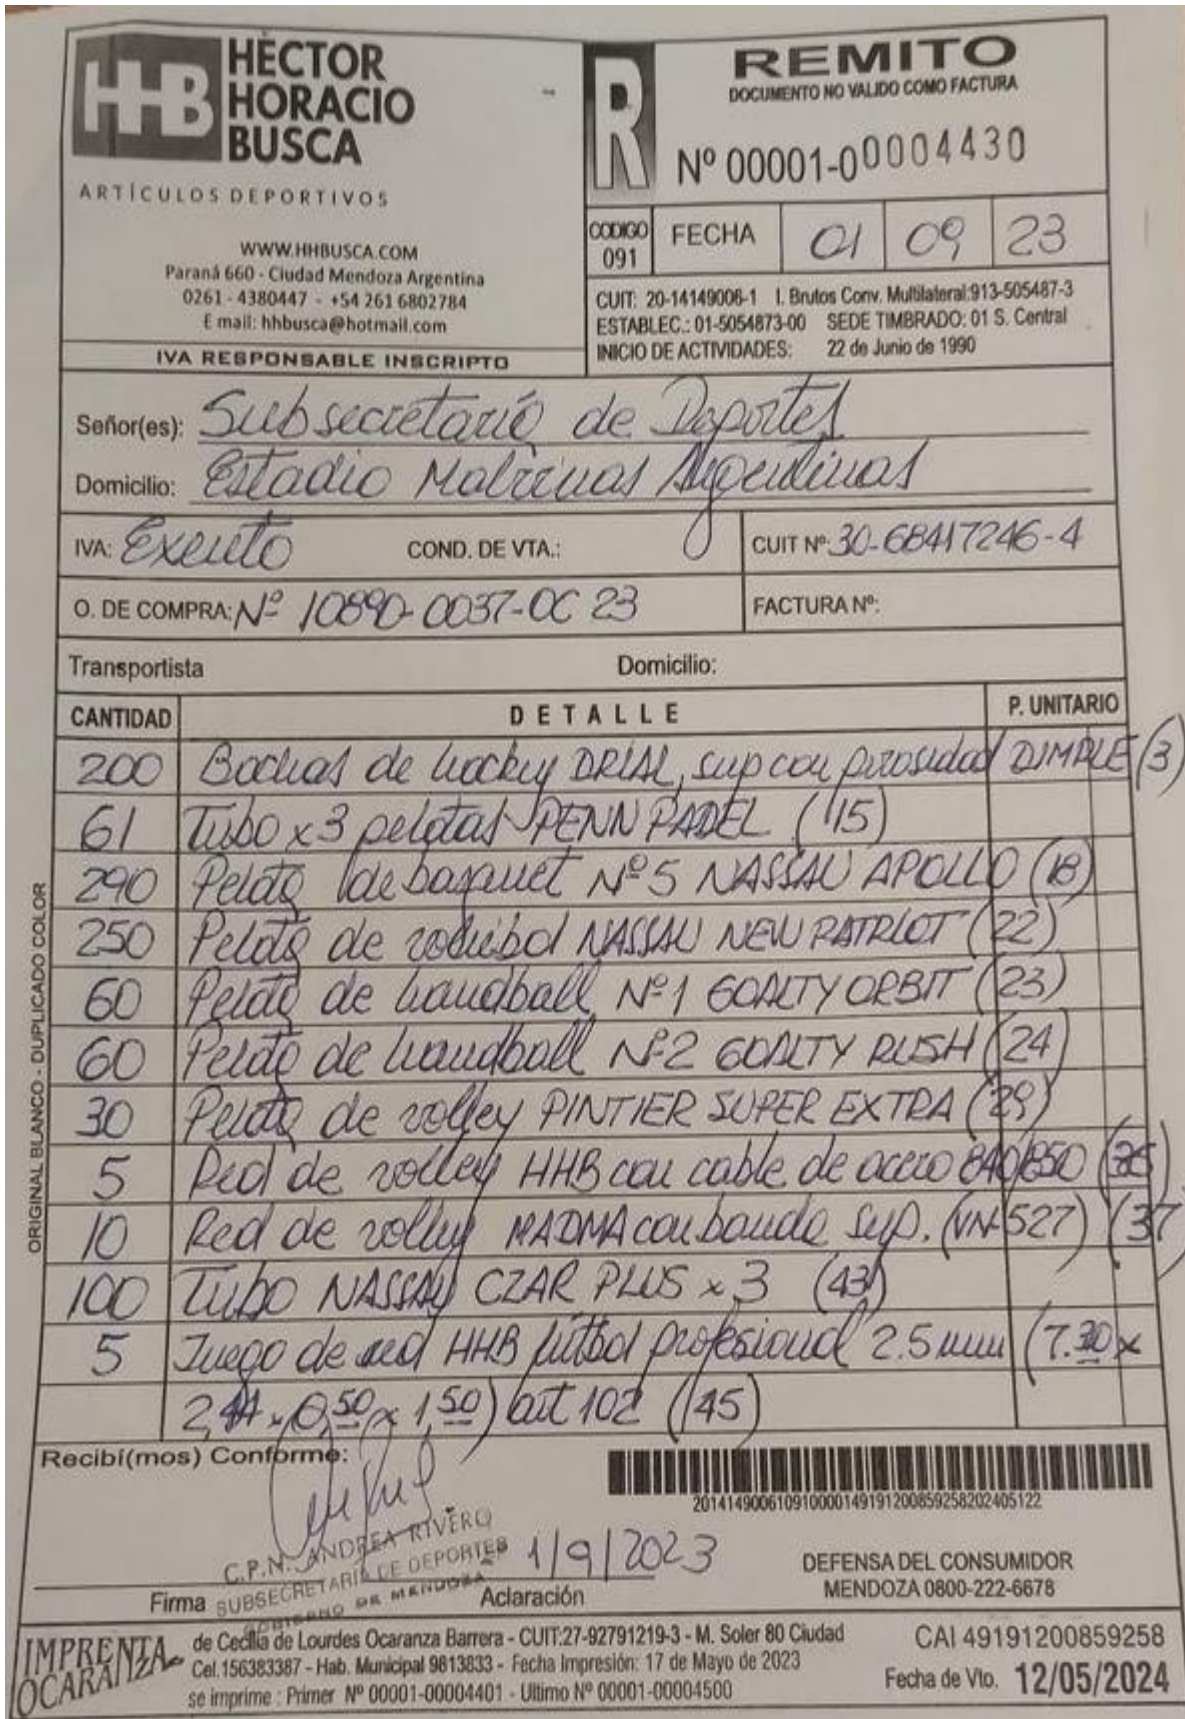 HHB HÉCTOR
HORACIO
BUSCA
ARTÍCULOS DEPORTIVOS
WWW.HHBUSCA.COM
Paraná 660 - Ciudad Mendoza Argentina
0261 - 4380447 - +54 261 6802784
E mail: hhbusca@hotmail.com
IVA RESPONSABLE INSCRIPTO
R
REMITO
DOCUMENTO NO VALIDO COMO FACTURA
Nº 00001-00004430
CODIGO 091 FECHA 01 09 23
CUIT: 20-14149006-1 I. Brutos Conv. Multilateral:913-505487-3
ESTABLEC.: 01-5054873-00 SEDE TIMBRADO: 01 S. Central
INICIO DE ACTIVIDADES: 22 de Junio de 1990
Señor(es): Subsecretaría de Deportes
Domicilio: Estadio Malvinas Argentinas
IVA: Exento COND. DE VTA.: CUIT Nº: 30-68417246-4
O. DE COMPRA: Nº 10890-0037-OC 23 FACTURA Nº:
Transportista Domicilio:
CANTIDAD DETALLE P. UNITARIO
200 Bochas de hockey DRIAL, sup con porosidad DIMPLE (3)
61 Tubo x 3 pelotas PENN PADEL (15)
290 Pelota de basquet Nº 5 NASSAU APOLLO (18)
250 Pelota de NASSAU NEW PATRIOT (22)
60 Pelota de handball Nº 1 GOALTY ORBIT (23)
60 Pelota de handball Nº 2 GOALTY RUSH (24)
30 Pelota de volley PINTIER SUPER EXTRA (29)
5 Red de volley HHB con cable de acero 840/850
10 Red de volley MADMA con banda sup. (VN-527) (37
100 Tubo NASSAU CZAR PLUS x 3 (43)
5 Juego de red HHB fútbol profesional 2.5 mm (7.30 x
2,44 x 0,50 x 1,50) art 102 (45)
Recibí(mos) Conforme:
201414900610910000149191200859258202405122
C.P.N. ANDREA RIVERO
SUBSECRETARIA DE DEPORTES
GOBIERNO DE MENDOZA
1/9/2023
Firma Aclaración
DEFENSA DEL CONSUMIDOR
MENDOZA 0800-222-6678
ORIGINAL BLANCO - DUPLICADO COLOR
IMPRENTA
OCARANZA
de Cecilia de Lourdes Ocaranza Barrera - CUIT:27-92791219-3 - M. Soler 80 Ciudad
Cel.156383387 - Hab. Municipal 9813833 - Fecha Impresión: 17 de Mayo de 2023
se imprime : Primer Nº 00001-00004401 - Ultimo Nº 00001-00004500
CAI 49191200859258
Fecha de Vto. 12/05/2024